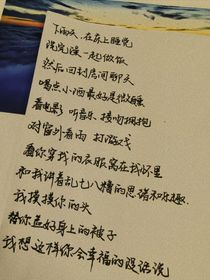 下雨天 在床上睡觉
洗完澡一起做饭
然后回封房间聊天
喝点小酒最好是微醺
看电影 听音乐 接吻拥抱
对窗外看雨 打游戏
看你穿我的衣服窝在我怀里
和我讲着乱七八糟的思绪和乐趣
我摸摸你的头
替你盖好身上的被子
我想这样你会幸福的没话说